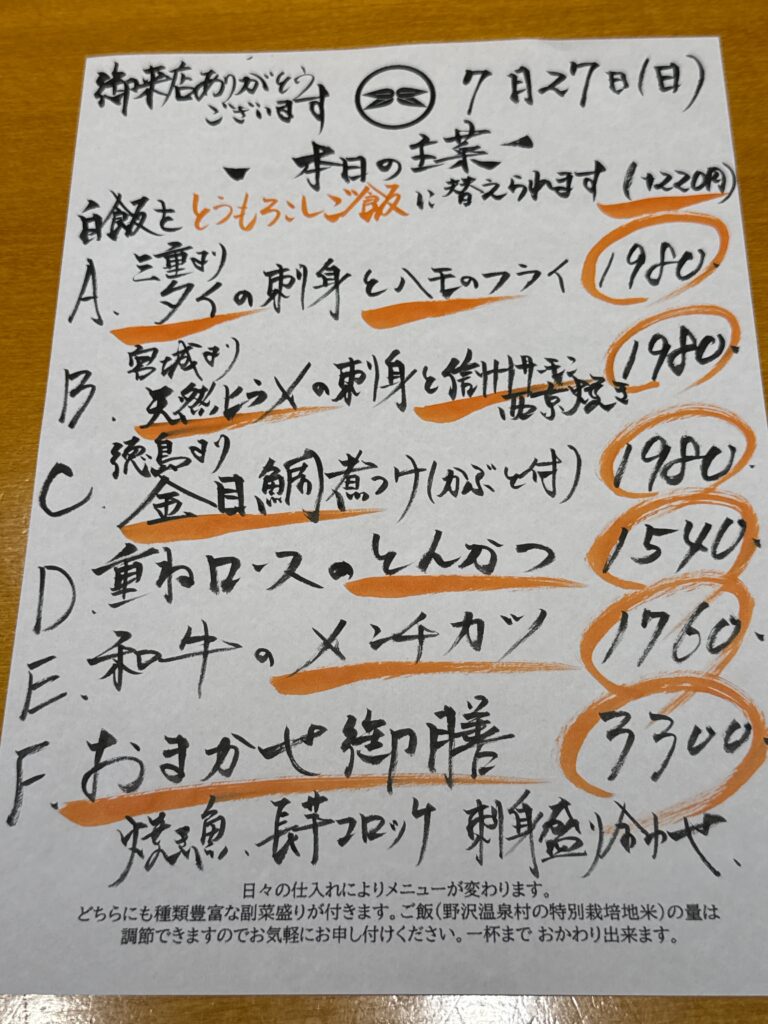 御来店ありがとう
ございます
7月27日(日)
本日の主菜
白飯をとうもろこしご飯に替えられます(+220円)
三重より
A. タイの刺身とハモのフライ 1980.
宮城より
B. 天然ヒラメの刺身と信州サーモン 1980.
西京焼き
徳島より
C 金目鯛煮つけ(かぶと付) 1980.
D. 重ねロースのとんかつ 1540.
E. 和牛のメンチカツ 1760.
F. おまかせ御膳 3300.
焼き魚、長芋コロッケ 刺身盛り合わせ、
日々の仕入れによりメニューが変わります。
どちらにも種類豊富な副菜盛りが付きます。ご飯(野沢温泉村の特別栽培地米)の量は
調節できますのでお気軽にお申し付けください。一杯まで おかわり出来ます。